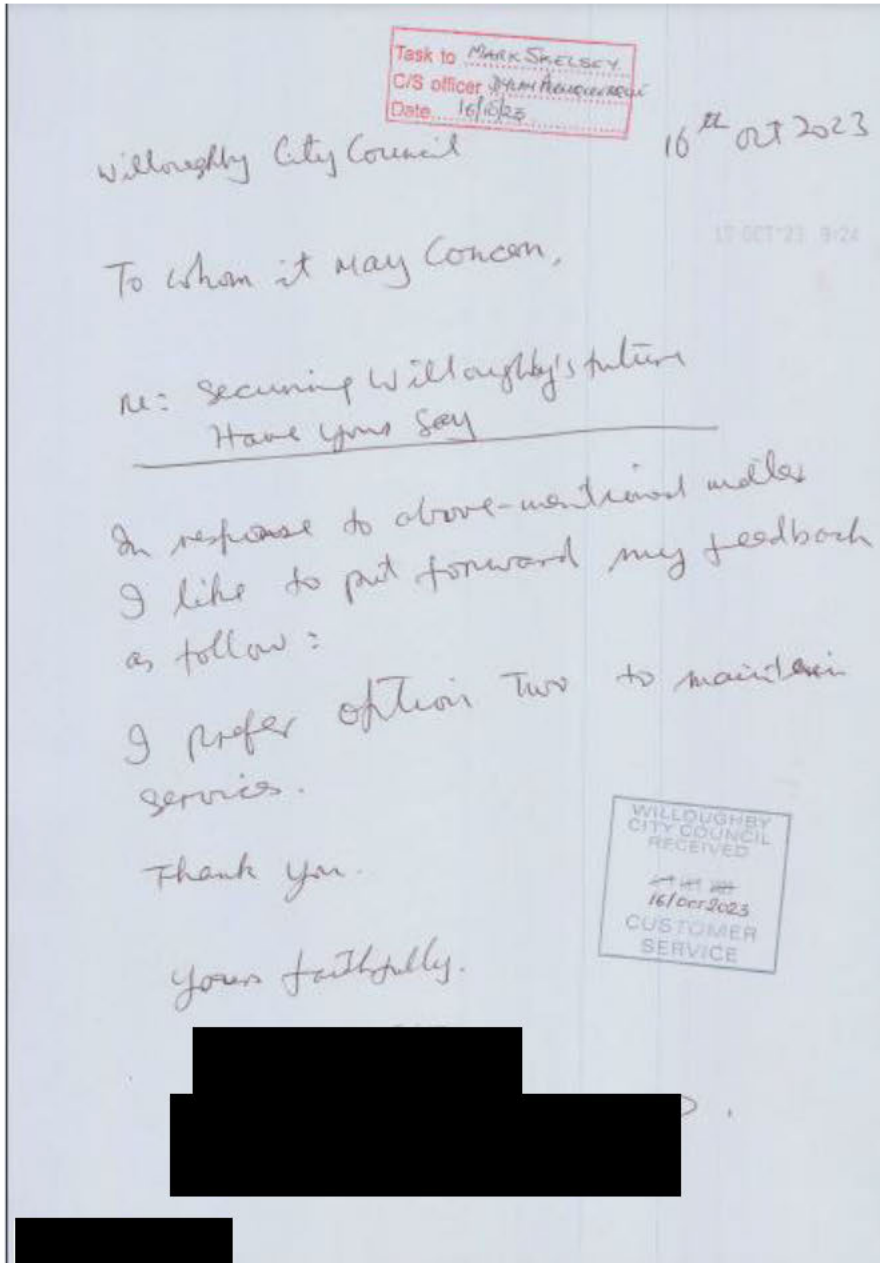 Task to MARK SKELSEY
C/S officer
Date 16/10/23
Willoughby City Council
16th Oct 2023
To whom it May Concern,
Re: Securing Willoughby's future
Have your Say
In response to above-mentioned matter
I like to put forward my feedback
as follow:
I prefer option Two to maintain
services.
Thank you.
Yours faithfully.
WILLOUGHBY
CITY COUNCIL
RECEIVED
16/Oct 2023
CUSTOMER
SERVICE